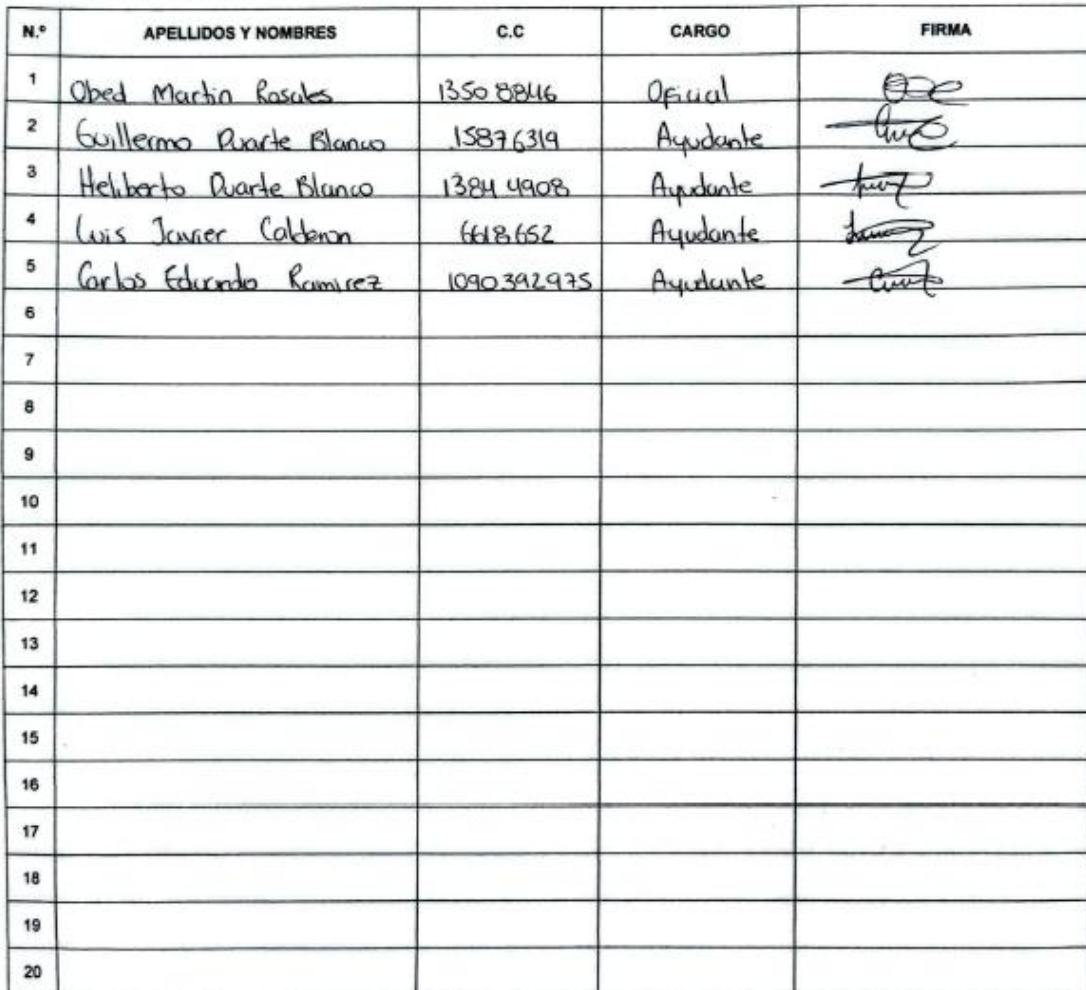 N.º APELLIDOS Y NOMBRES C.C CARGO FIRMA
1 Obed Martin Rosales 13508846 Oficial
2 Guillermo Duarte Blanco 15876319 Ayudante
3 Heliberto Duarte Blanco 13844908 Ayudante
4 Luis Javier Calderon 6618652 Ayudante
5 Carlos Eduardo Ramirez 1090392975 Ayudante
6
7
8
9
10
11
12
13
14
15
16
17
18
19
20